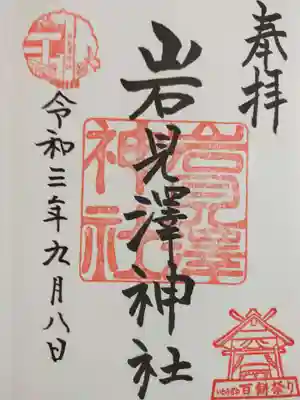 奉拝
岩見澤神社
岩見澤
神社
令和三年九月八日
百餅祭り